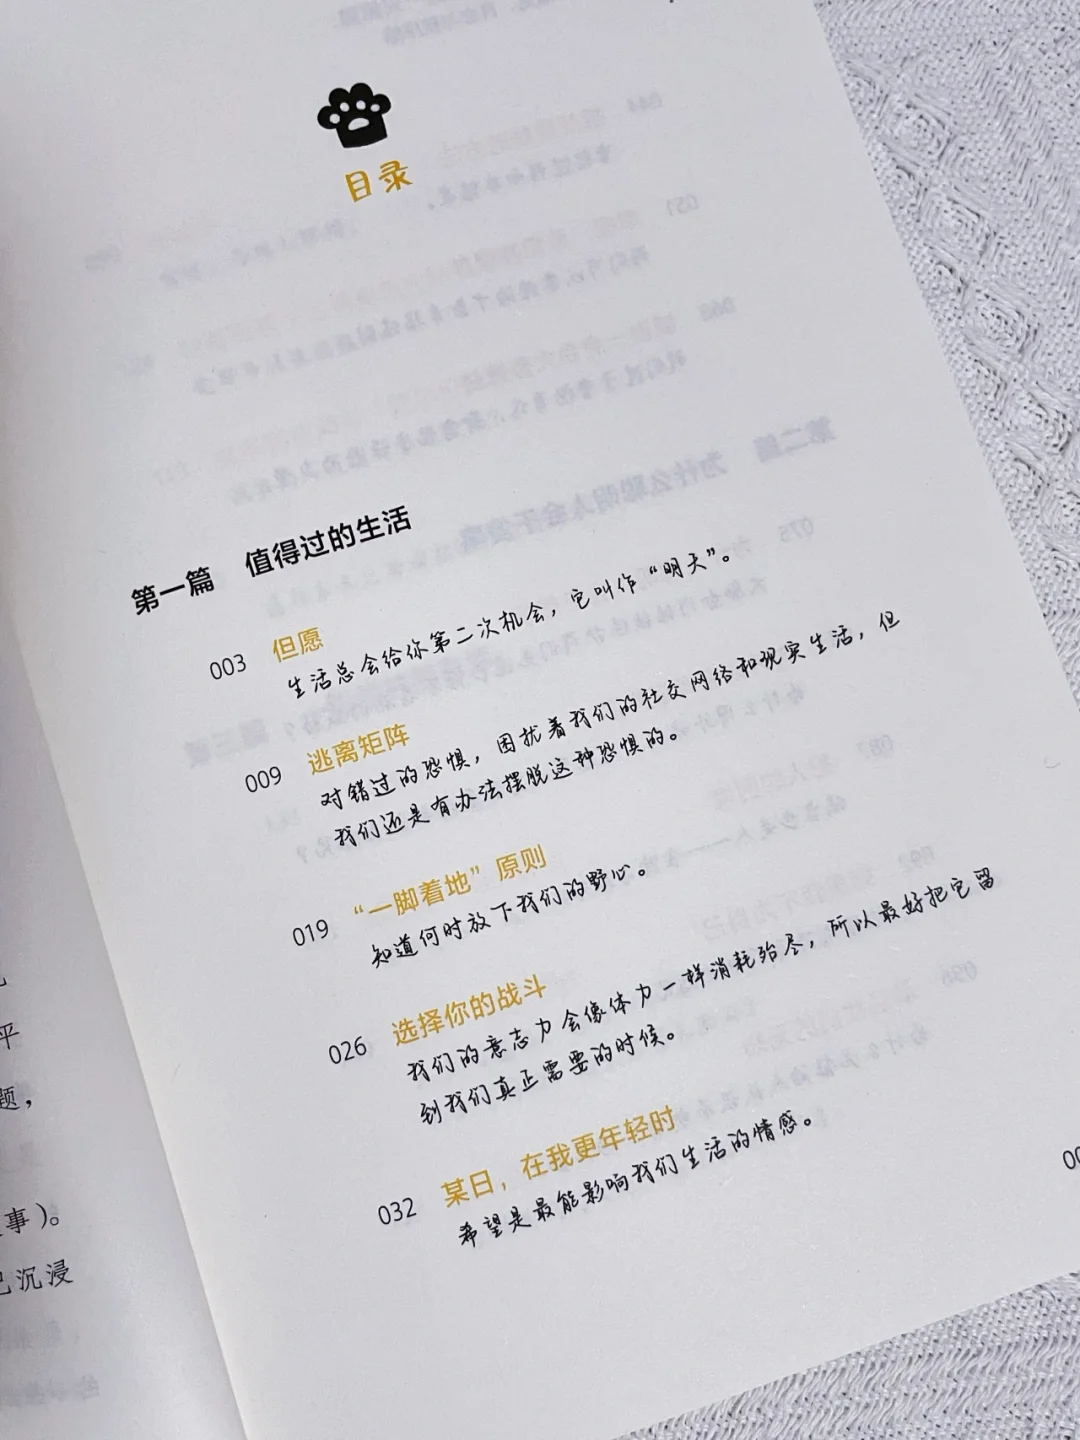 目录
第一篇 值得过的生活
003 但愿
生活总会给你第二次机会，它叫作“明天”。
009 逃离矩阵
对错过的恐惧，困扰着我们的社交网络和现实生活，但
我们还是有办法摆脱这种恐惧的。
019 “一脚着地”原则
知道何时放下我们的野心。
026 选择你的战斗
我们的意志力会像体力一样消耗殆尽，所以最好把它留
到我们真正需要的时候。
032 某日，在我更年轻时
希望是最能影响我们生活的情感。
平
题，
事）。
沉浸